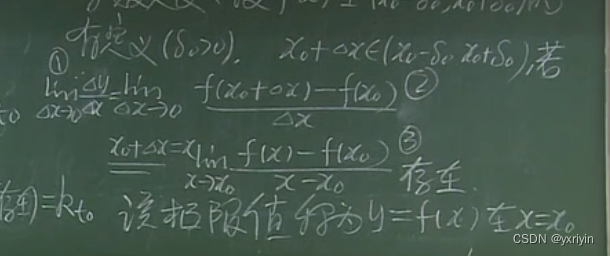 有定义(δ₀>0). x₀+Δx∈(x₀-δ₀, x₀+δ₀),若
① lim Δx→0 Δy/Δx = lim Δx→0 f(x₀+Δx)-f(x₀) / Δx ②
x₀+Δx=x lim x→x₀ f(x)-f(x₀) / x-x₀ ③ 存在.
)=k t₀ 该极限值称为y=f(x)在x=x₀
CSDN @yxriyin